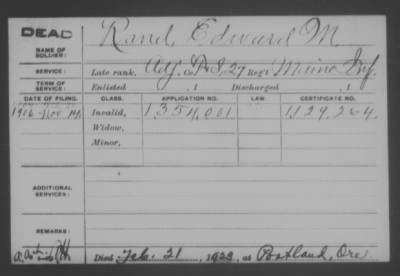 DEAD
NAME OF SOLDIER:
Rand, Edward M.
SERVICE:
Late rank, Adj. Co. F&S, 27 Reg't Maine Inf.
TERM OF SERVICE:
Enlisted , 1 Discharged , 1
DATE OF FILING. CLASS. APPLICATION NO. LAW. CERTIFICATE NO.
1916-Nov. 14, Invalid, 1,354,001 1,129,264.
Widow,
Minor,
ADDITIONAL SERVICES:
REMARKS:
Died Feb. 21, 1922, at Portland, Ore